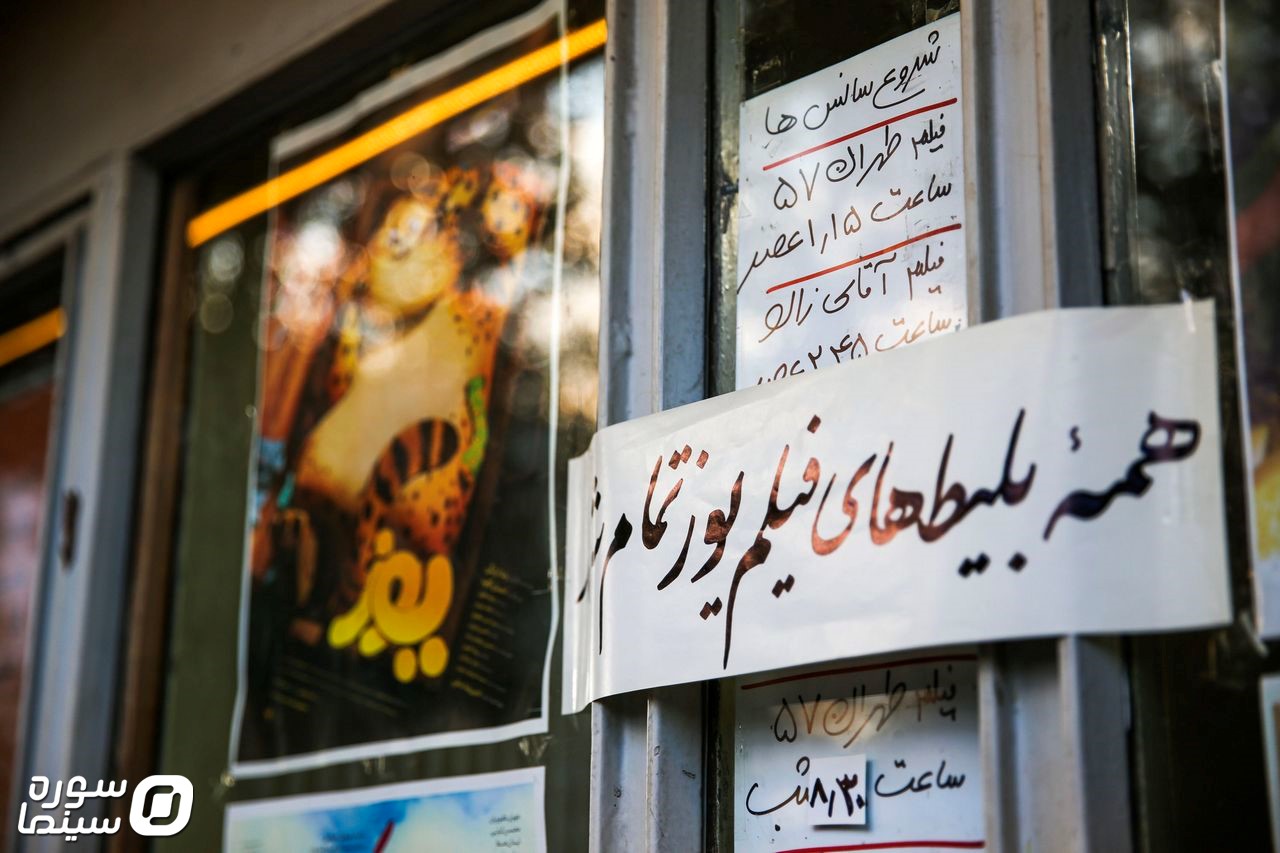 شروع سانس ها
فیلم طهران ۵۷
ساعت ۱٫۱۵ عصر
فیلم آقای زالو
ساعت ۲۴۵ عصر
همهٔ بلیط‌های فیلم یوز تمام شد
فیلم طهران ۵۷
ساعت ۸٫۳۰ شب
یوز
سوره
سینما